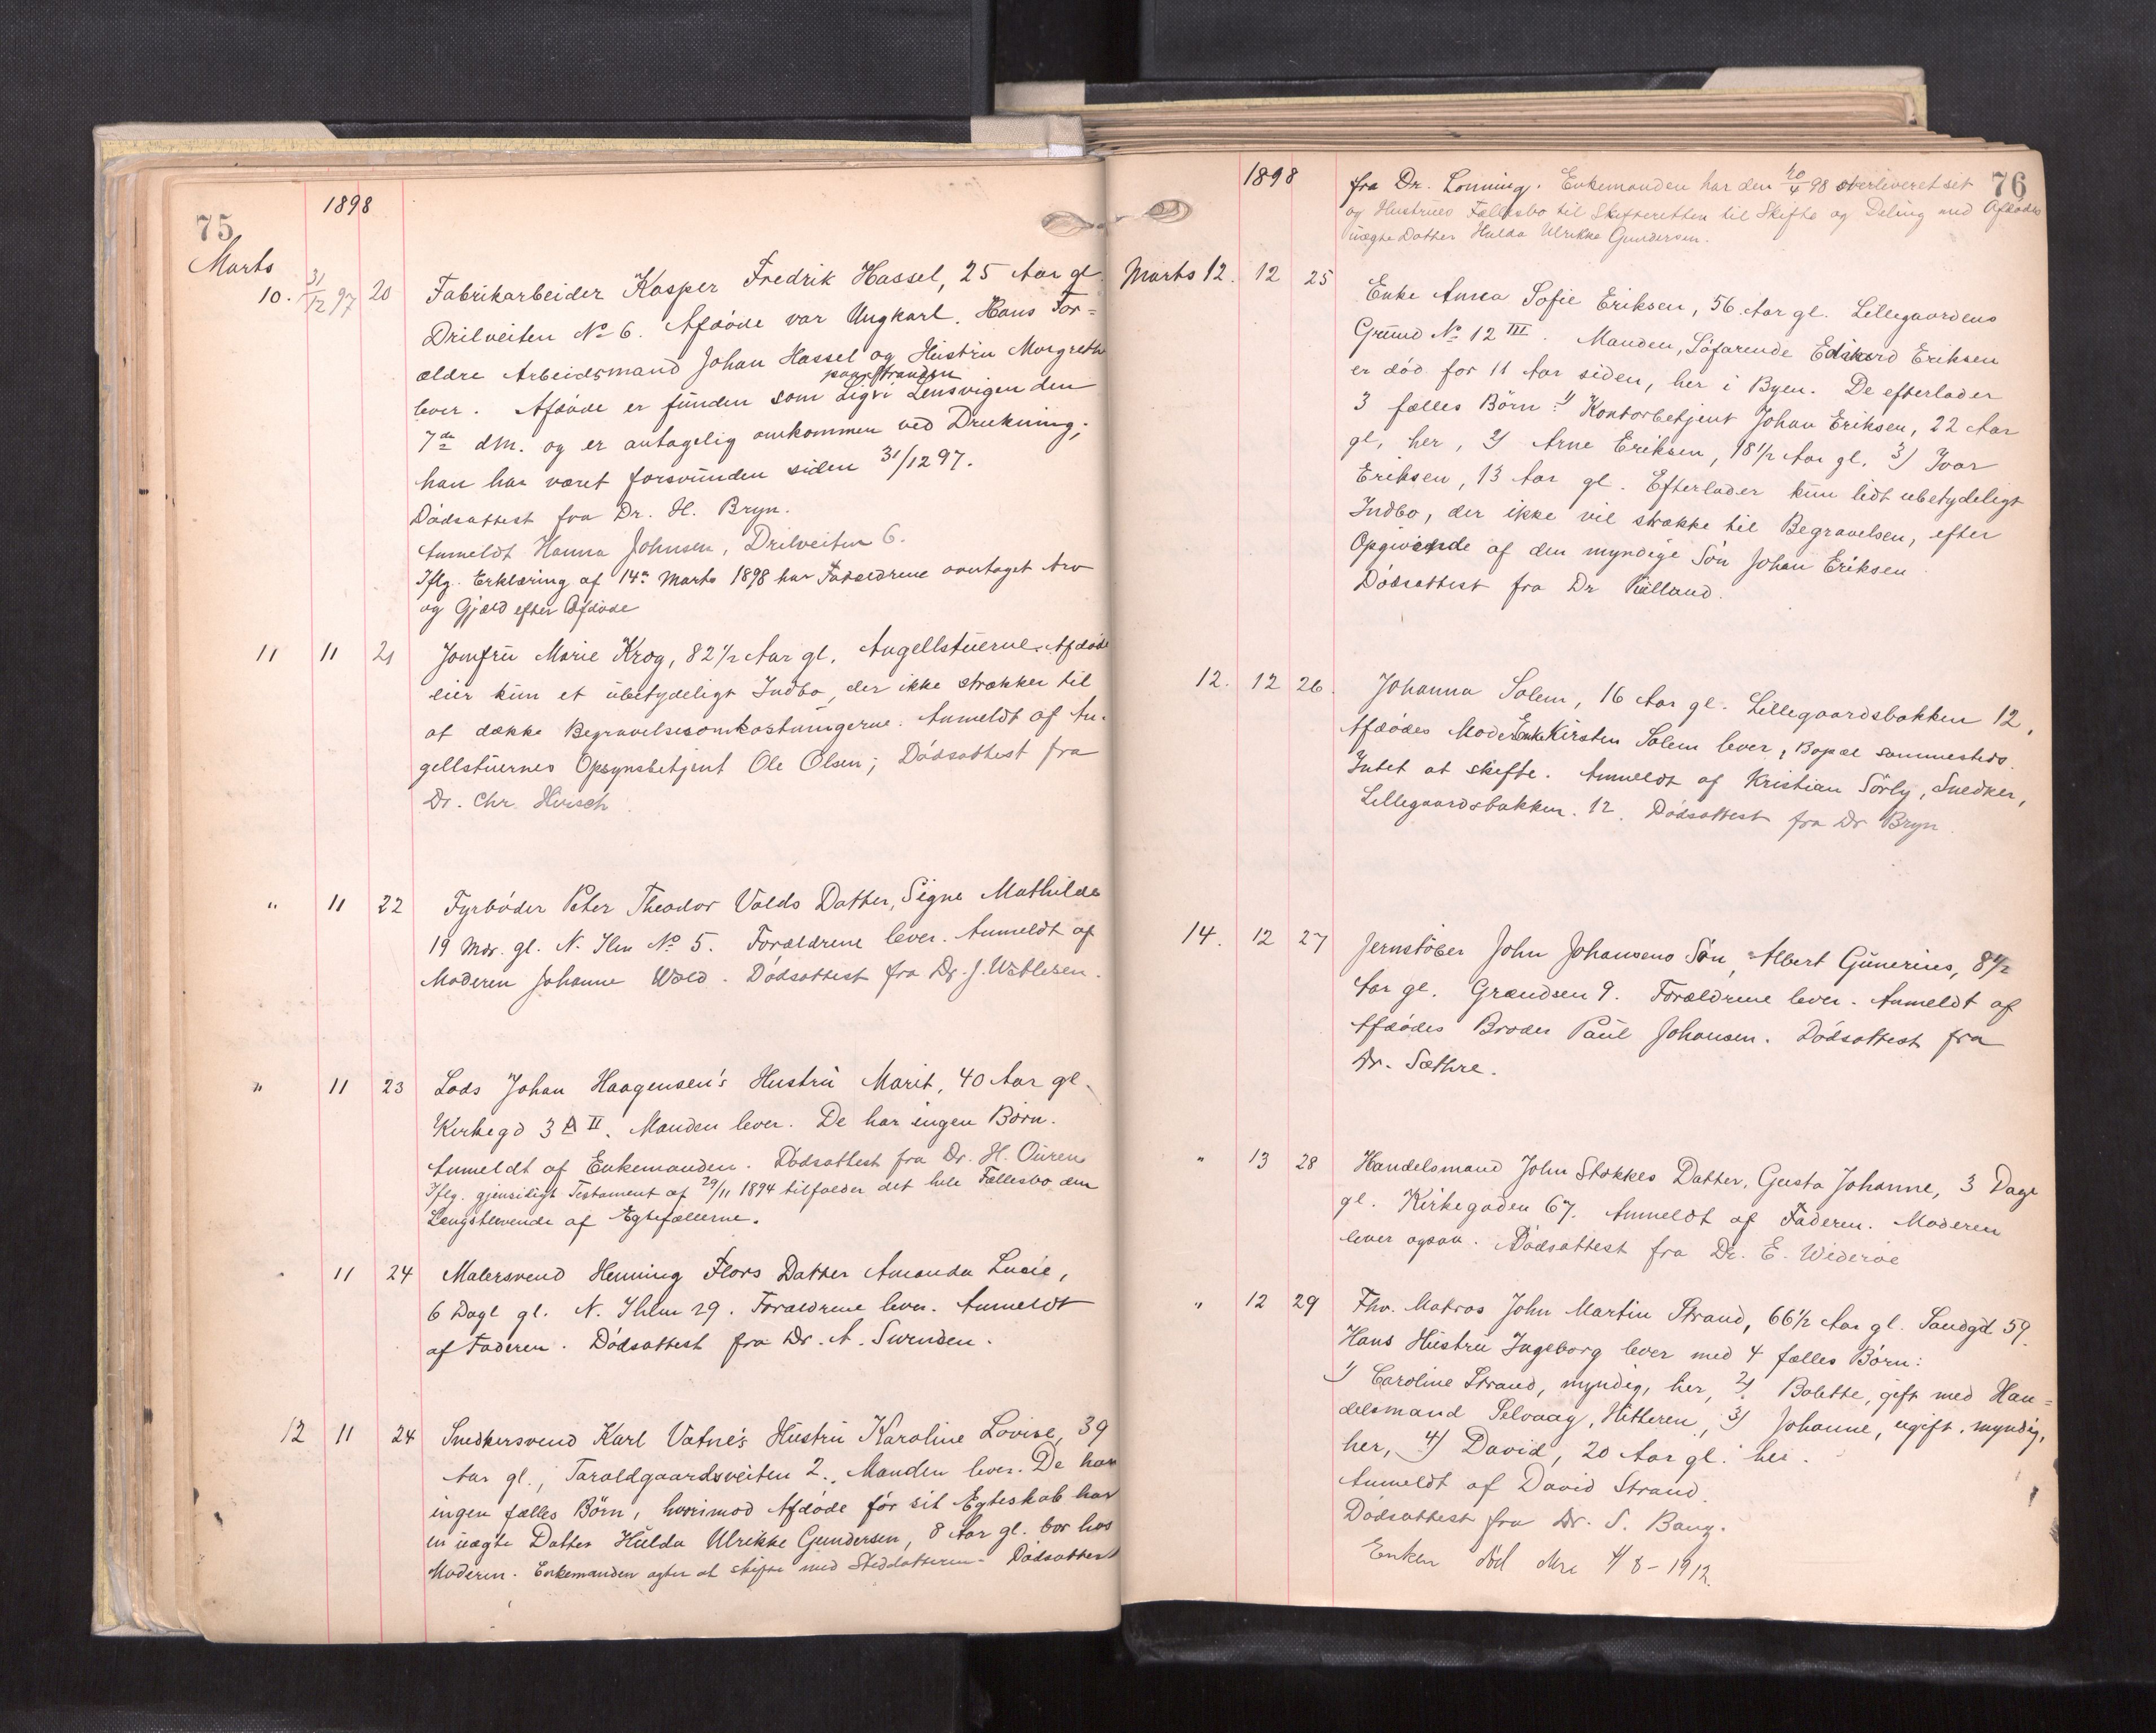 75
1898
Marts
10. 31/12 97 20 Fabrikarbeider Kasper Fredrik Hassel, 25 Aar gl.
Drilveiten No 6. Afdöde var Ungkarl. Hans For=
ældre Arbeidsmand Johan Hassel og Hustru Margrethe
paa Stranden
lever. Afdöde er funden som Lig i Lensvigen den
7de dm. og er antagelig omkommen ved Drukning;
han har været forsvunden siden 31/12 97.
Dödsattest fra Dr. H. Bryn.
Anmeldt Hanna Johnsen, Drilveiten 6.
Iflg. Erklæring af 14de Marts 1898 har Forældrene overtaget Arv
og Gjæld efter Afdöde
11 11 21 Jomfru Marie Krog, 82 1/2 Aar gl. Angellstuerne. Afdöde
eier kun et ubetydeligt Indbo, der ikke strækker til
at dække Begravelsesomkostningerne. Anmeldt af An-
gellstuernes Opsynsbetjent Ole Olsen; Dödsattest fra
Dr. Chr. Hirsch
" 11 22 Fyrböder Peter Theodor Valds Datter, Signe Mathilde
19 Mdr. gl. N. Ilen No 5. Forældrene lever. Anmeldt af
Moderen Johanne Wold. Dödsattest fra Dr. J.
" 11 23 Lods Johan Haagensen's Hustru Marit, 40 Aar gl.
Kirkegd 3 A II. Manden lever. De har ingen Börn.
Anmeldt af Enkemanden. Dödsattest fra Dr. H. Ouren
Iflg. gjensidigt Testament af 29/11 1894 tilfalder det hele Fællesbo den
Længstlevende af Egtefællerne.
" 11 24 Malersvend Henning Flors Datter Amanda Lucie,
6 Dage gl. N. Ihlen 29. Forældrene lever. Anmeldt
af Faderen. Dödsattest fra Dr. A. Svendsen.
12 11 24 Snedkersvend Karl Vatne's Hustru Karoline Lovise, 39
Aar gl., Taraldgaardsveiten 2. Manden lever. De har
ingen fælles Börn, hvorimod Afdöde för sit Egteskab har
en uægte Datter Hulda Ulrikke Gundersen, 8 Aar gl. bor hos
Moderen. Enkemanden agter at skifte med Steddatteren. Dödsattest
76
1898
fra Dr. Lonning. Enkemanden har den 20/4 98 overleveret sit
og Hustrues Fællesbo til Skifteretten til Skifte og Deling med Afdödes
uægte Datter Hulda Ulrikke Gundersen.
Marts 12. 12 25 Enke Anna Sofie Eriksen, 56 Aar gl. Lillegaardens
Grund No 12 III. Manden, Söfarende Edvard Eriksen
er död for 11 Aar siden, her i Byen. De efterlader
3 fælles Börn: 1/ Kontorbetjent Johan Eriksen, 22 Aar
gl, her, 2/ Arne Eriksen, 18 1/2 Aar gl. 3/ Ivar
Eriksen, 13 Aar gl. Efterlader kun lidt ubetydeligt
Indbo, der ikke vil strække til Begravelsen, efter
Opgivende af den myndige Sön Johan Eriksen
Dödsattest fra Dr Kielland.
12. 12 26. Johanna Solem, 16 Aar gl. Lillegaardsbakken 12,
Afdödes Moder Enke Kirsten Solem lever, Bopæl sammesteds.
Intet at skifte. Anmeldt af Kristian Sörly, Snedker,
Lillegaardsbakken. 12. Dödsattest fra Dr Bryn.
14. 12 27 Jernstöber John Johansens Sön, Albert Gunerius, 8 1/2
Aar gl. Grændsen 9. Forældrene lever. Anmeldt af
Afdödes Broder Paul Johansen. Dödsattest fra
Dr. Sæthre.
" 13 28 Handelsmand John Stokkes Datter, Gusta Johanne, 3 Dage
gl. Kirkegaden 67. Anmeldt af Faderen. Moderen
lever ogsaa. Dödsattest fra Dr. E. Wideröe
" 12 29 Fhv. Matros John Martin Strand, 66 1/2 Aar gl. Sandgd. 59.
Hans Hustru Ingeborg lever med 4 fælles Börn:
1/ Caroline Strand, myndig, her, 2/ Bolette, gift med Han=
delsmand Selvaag, Hitteren, 3/ Johanne, ugift, myndig,
her, 4/ David, 20 Aar gl. her.
Anmeldt af David Strand.
Dödsattest fra Dr. S. Bang.
Enken död 4/8-1912.